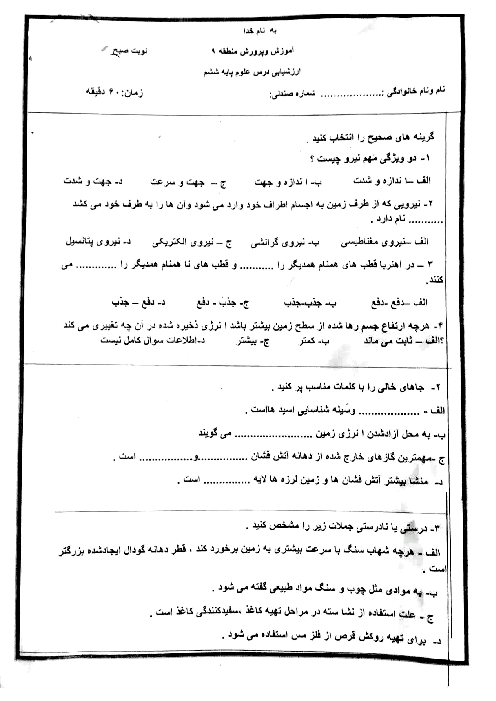 به نام خدا
آموزش وپرورش منطقه ۹
نوبت صبح
ارزشیابی درس علوم پایه ششم
نام ونام خانوادگی :................... شماره صندلی: زمان: ۶۰ دقیقه
گزینه های صحیح را انتخاب کنید .
۱- دو ویژگی مهم نیرو چیست ؟
الف –ا ندازه و شدت ب- ا ندازه و جهت ج – جهت و سرعت د- جهت و شدت
۲- نیرویی که از طرف زمین به اجسام اطراف خود وارد می شود وان ها را به طرف خود می کشد
........... نام دارد .
الف –نیروی مغناطیسی ب- نیروی گرانشی ج – نیروی الکتریکی د- نیروی پتانسیل
۳ – در اهنربا قطب های همنام همدیگر را ........... و قطب های نا همنام همدیگر را ............. می
کنند.
الف –دفع -دفع ب- جذب-جذب ج- جذب - دفع د- دفع – جذب
۴- هرچه ارتفاع جسم رها شده از سطح زمین بیشتر باشد ا نرژی ذخیره شده در آن چه تغییری می کند
؟الف – ثابت می ماند ب- کمتر ج- بیشتر د-اطلاعات سوال کامل نیست
۲- جاهای خالی را با کلمات مناسب پر کنید .
الف - ................... وسیله شناسایی اسید هااست .
ب- به محل آزادشدن ا نرژی زمین ......................... می گویند
ج -مهمترین گازهای خارج شده از دهانه آتش فشان ................و................. است .
د- منشا بیشتر آتش فشان ها و زمین لرزه ها لایه ............... است .
۳- درستی یا نادرستی جملات زیر را مشخص کنید .
الف - هرچه شهاب سنگ با سرعت بیشتری به زمین برخورد کند ، قطر دهانه گودال ایجادشده بزرگتر
است .
ب- به موادی مثل چوب و سنگ مواد طبیعی گفته می شود .
ج - علت استفاده از نشا سته در مراحل تهیه کاغذ ،سفیدکنندگی کاغذ است .
د- برای تهیه روکش قرص از فلز مس استفاده می شود .